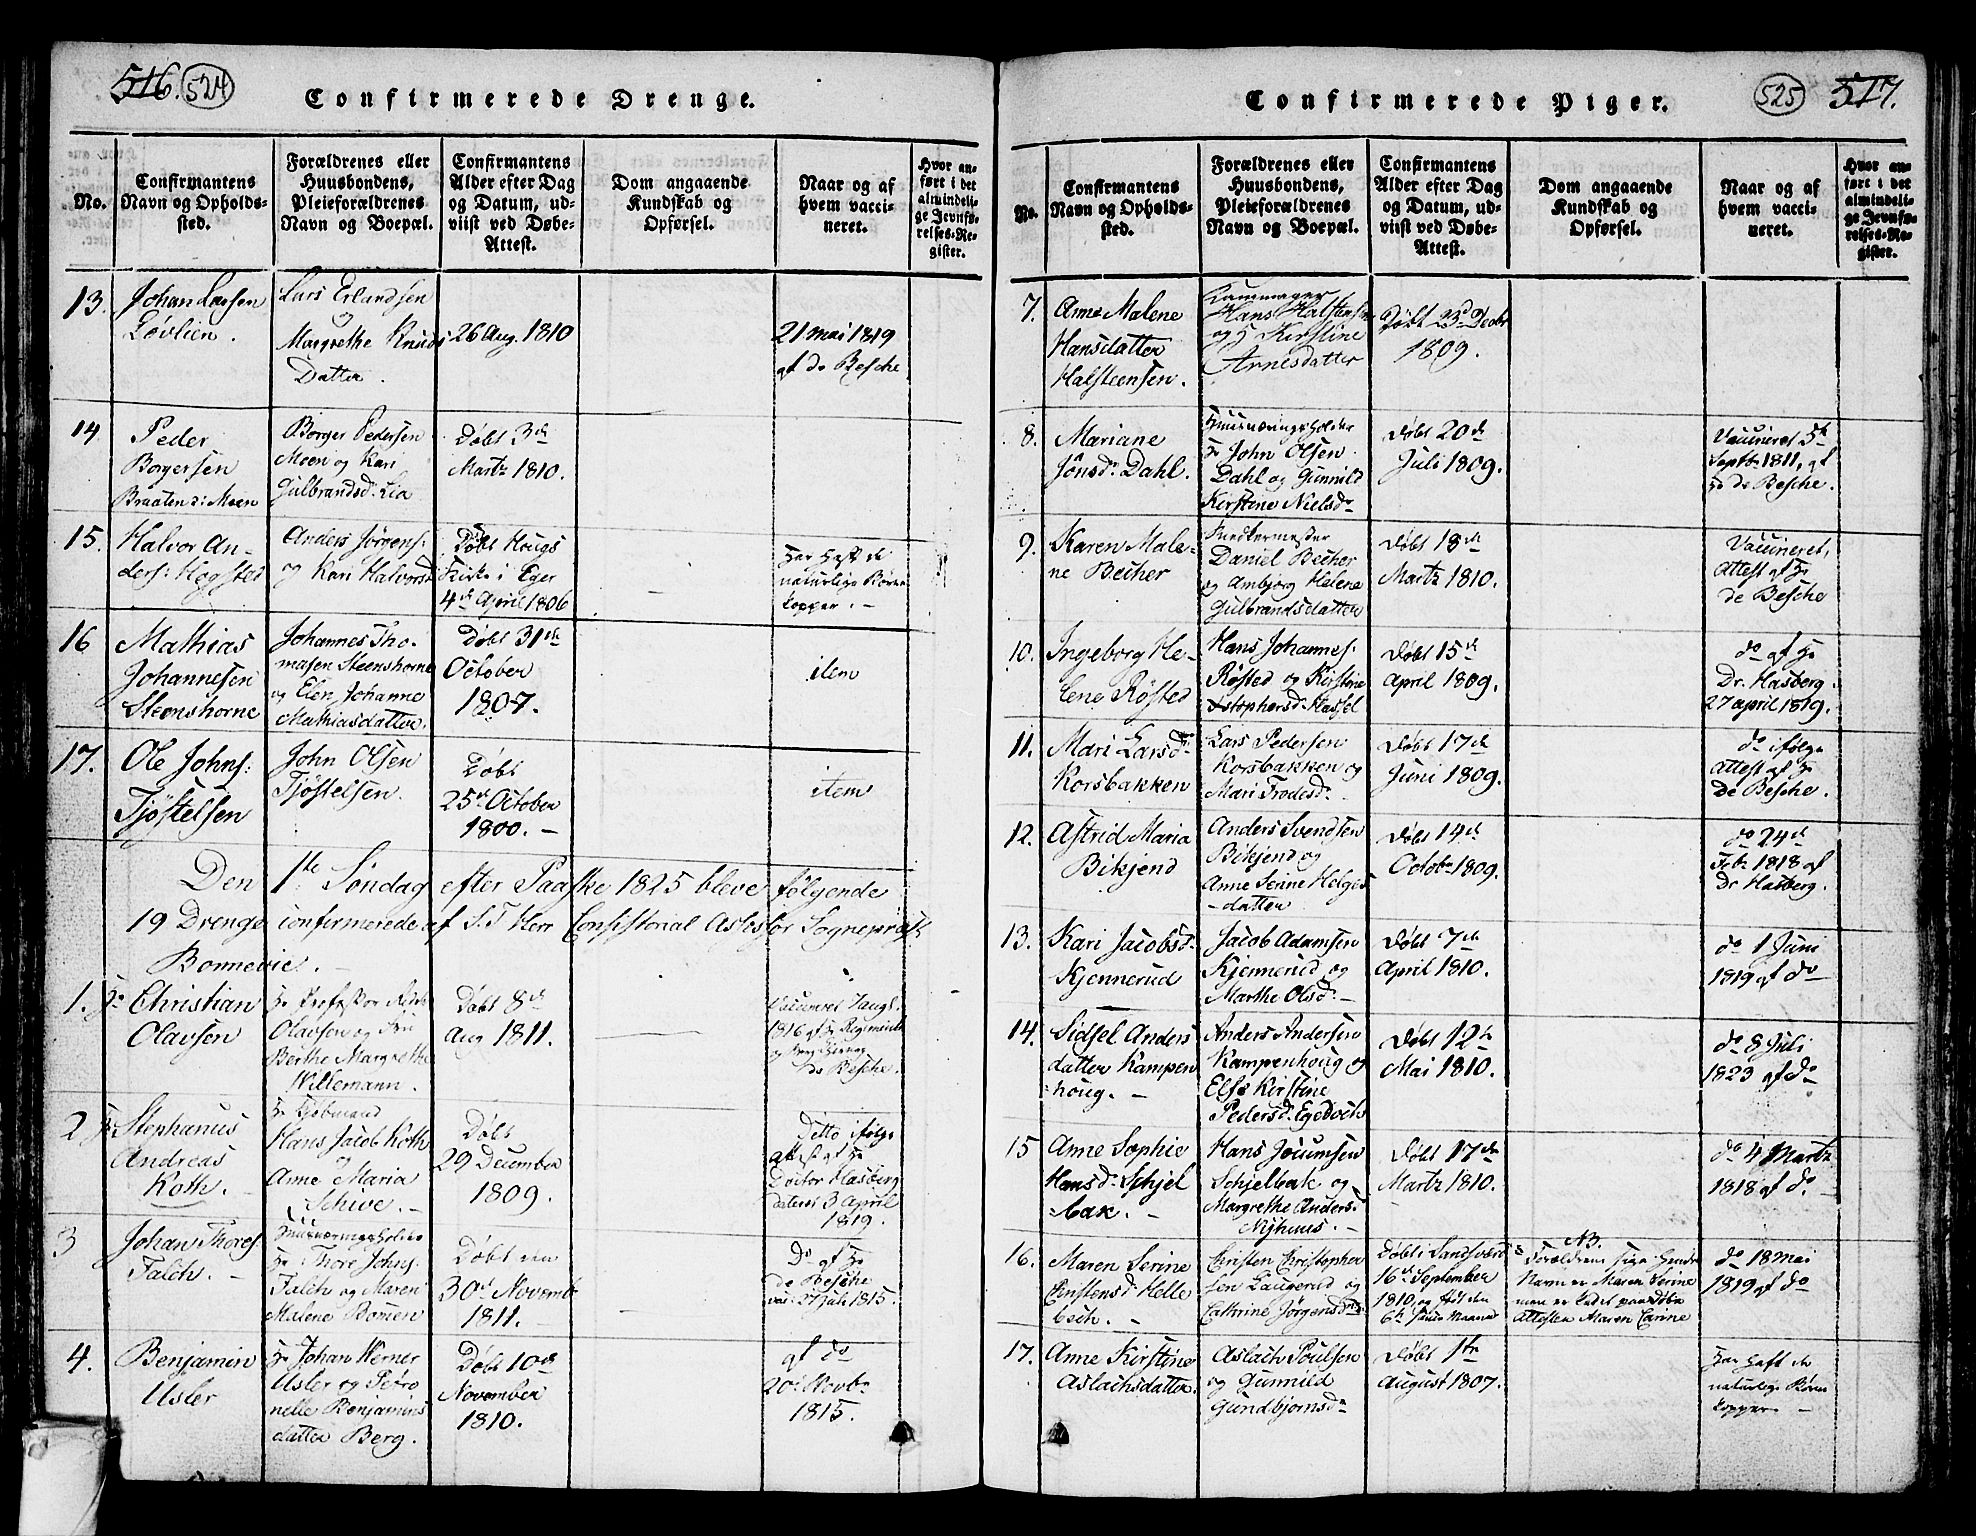 516. 524
Confirmerede Drenge.
No.
Confirmantens Navn og Opholds-sted.
Forældrenes eller Huusbondens, Pleieforældrenes Navn og Boepæl.
Confirmantens Alder efter Dag og Datum, ud-viist ved Døbe-Attest.
Dom angaaende Kundskab og Opførsel.
Naar og af hvem vacci-neret.
Hvor an-ført i det almindeli-ge Jevnfø-relses-Re-gister.
13. Johan Larsen
Løvlien.
Lars Erlandsen
og
Margrethe Knuds
Datter.
26 Aug. 1810
21 mai 1819
af de Besche
14. Peder
Borgersen
Braaten d: Moen
Borger Pedersen
Moen og Kari
Gulbrandsd: Lia
Døbt 3de
Martz 1810.
15. Halvor An-
ders: Hogsted
Anders Jörgens:
og Kari Halvorsd
Døbt Hougs
Kirke i Eger
4de April 1806
Har Haft de
naturlige Børne
kopper. -
16 Mathias
Johannesen
Steenshorne
Johannes Tho-
masen Steenshorne
og Elen Johanne
Mathiasdatter.
Døbt 31te
October
1807.
item
17. Ole Johns:
Tjöstelsen
John Olsen
Tjöstelsen.
Døbt
25de October
1800. -
item
Den 1te Søndag efter Paaske 1825 bleve følgende
19 Drenge confirmerede af S.T. Herr Consistorial Assessor Sognepræst
Bonnevie. -
1. Hr Christian
Olavsen
Hr Professor
Olavsen og Fru
Berthe Margrethe
Willemann.
Døbt 8de
Aug 1811.
Vaccineret
1816 af Hr Regiments
og
de Besche.
2 Stephanus
Andreas
Koth. -
Hr Kjøbmand
Hans Jacob Koth
og
Anne Maria
Schive. -
Døbt
29 December
1809.
Detto ifølge
Attest af Hr
Doctor Hasberg
dateret 3 April
1819.
3 Johan Thores
Falch. -
Huusnæringsholder
Hr Thore Johns:
Falch og Maren
Malene Bomen
Døbt den
30de Novemb
1811.
Do af Hr
de Besche
27 juli 1815.
4. Benjamin
Usler
Hr Johan Werner
Usler og Petro
nelle Benjamins
datter Berg.
Døbt 10de
November
1810.
af do
20de Novbr
1815.
525 517.
Confirmerede Piger.
No.
Confirmantens Navn og Opholds-sted.
Forældrenes eller Huusbondens, Pleieforældrenes Navn og Boepæl.
Confirmantens Alder efter Dag og Datum, ud-viist ved Døbe-Attest.
Dom angaaende Kundskab og Opførsel.
Naar og af hvem vacci-neret.
Hvor an-ført i det almindeli-ge Jevnfø-relses-Re-gister.
7. Anne Malene
Hansdatter
Halsteensen.
Kammager
Hans Halsteensen
og Kirstine
Arnesdatter
Døbt 23d Decbr
1809.
8. Mariane
Jónsd: Dahl.
Huusnæringsholder
Hr John Olsen
Dahl og Gunnild
Kirstine Nielsdr
Døbt 20de
Juli 1809.
Vaccineret 5te
Septb. 1811, af
Hr de Besche.
9. Karen Male-
ne Becher
Snedkermester
Daniel Becher
og Ambjørg Helene
Gulbrandsdatter
Døbt 18de
Martz 1810.
Vaccineret,
Attest af Hr
de Besche
10. Ingeborg He-
lene Røsted
Hans Johannes:
Røsted og Kirstine
Xstophersd: Hassel
Døbt 15de
April 1809.
do af Hr
Dr. Hasberg.
27 april 1819.
11. Mari Larsd:
Korsbakken
Lars Pedersen
Korsbakken og
Mari Frodesd: -
Døbt 17de
Juni 1809.
do ifølge
Attest af Hr
De Besche.
12. Astrid Maria
Bikjend
Anders Svendsen
Bikjend og
Anne Serine Helges
-datter
Døbt 14de
Octobr 1809.
do 24de
Feb. 1818 af
Dr Hasberg.
13. Kari Jacobsd:
Kjennerud
Jacob Adamsen
Kjennerud og
Marthe Olsd: -
Døbt 7de
April 1810.
do 1 Juni
1819 af do
14. Sidsel Anders
datter Kampen
houg. -
Anders Andersen
Kampenhoug og
Else Kirstine
Pedersd: Egedock
Døbt 12te
Mai 1810.
do 8 Juli
1823 af do
15 Anne Sophie
Hansd: Schjel
bak. -
Hans Jocumsen
Schjelbak og
Margrethe Anders:
Nyhuus. -
Døbt 17de
Martz 1810.
do 4 Martz
1818 af do -
16. Maren Serine
Christensd Helle
bech. -
Christen Christopher
sen Laugerud og
Cathrine Jørgensd
Døbt i Sandsværd
16de September
1810, og født den
6te samme Maaned
NB.
Forældrene sige hendes
Navn er Maren Serine
men er kaldet paa Døbe
Attesten Maren Carine
do 18 Mai
1819 af do
17. Anne Kirstine
Aslachsdatter.
Aslach Poulsen
og Gunnild
Gundbjørnsdr
Døbt 1te
August 1807.
Har haft de
naturlige Børne
kopper -